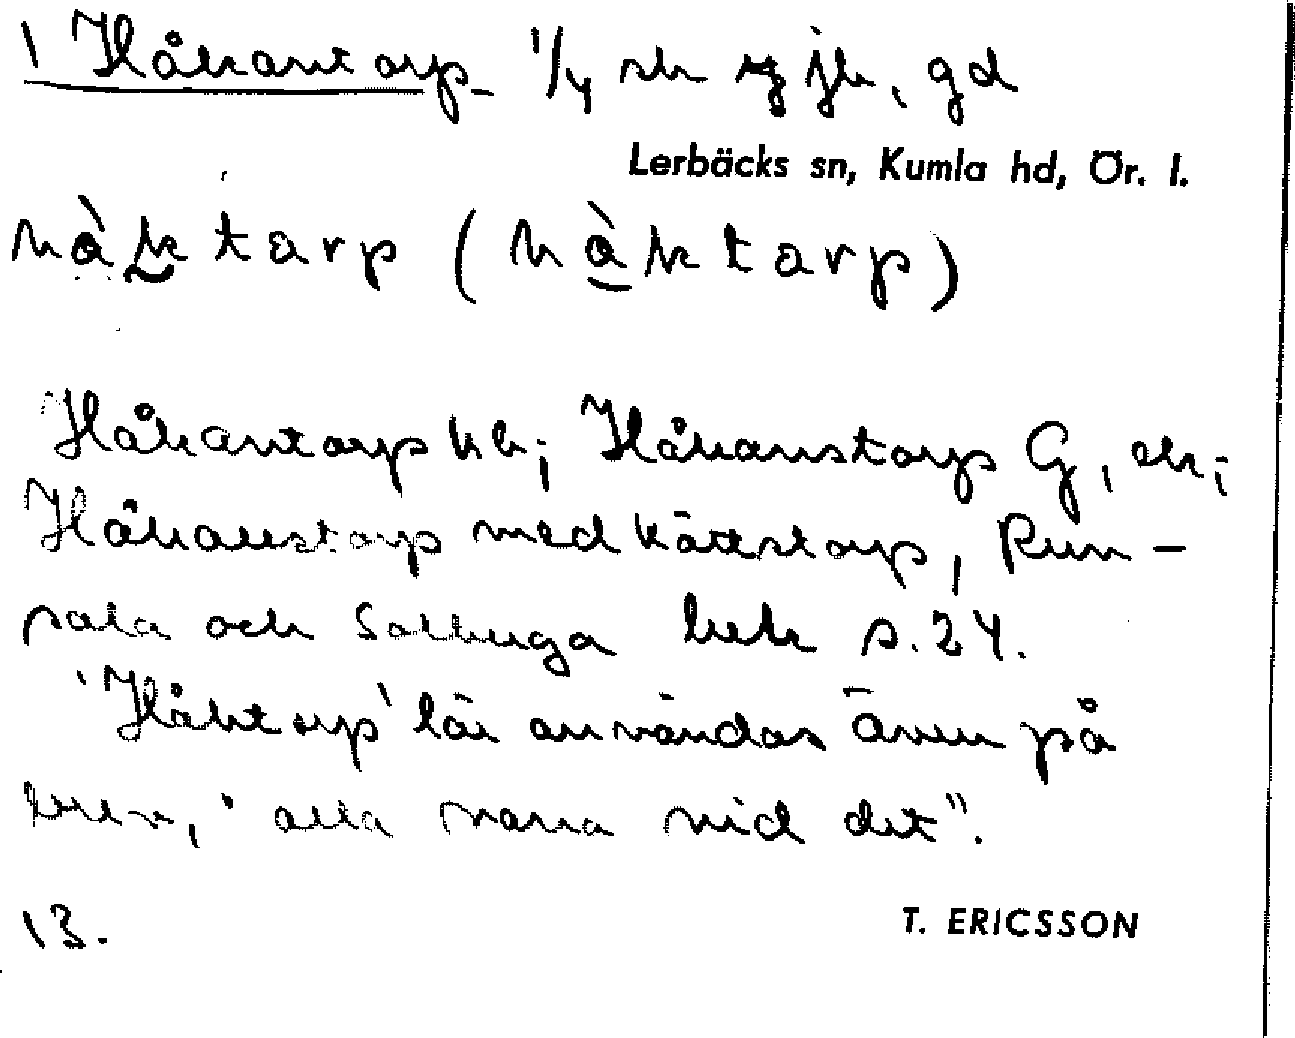 1 Håkantorp 1/4 sk jb, gd
Lerbäcks sn, Kumla hd, Ör. l.
hàktarp (hàktarp)
Håkantorp kb; Håkanstorp G, ek;
Håkanstorp med Kättstorp, Run-
sala och Solberga hek s. 24.
'Håktorp' lär användas även på
brev, "alla vana vid det".
13.
T. ERICSSON